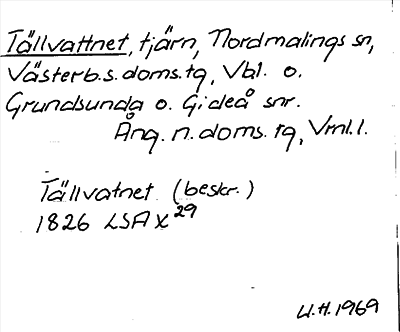 Tällvattnet, tjärn, Nordmalings sn,
Västerb.s.doms.tg, Vbl. o.
Grundsunda o. Gideå snr.
Ång. n. doms. tg, Vrnl. l.
Tällvatnet (beskr.)
1826 LSA X 29
U.H. 1969